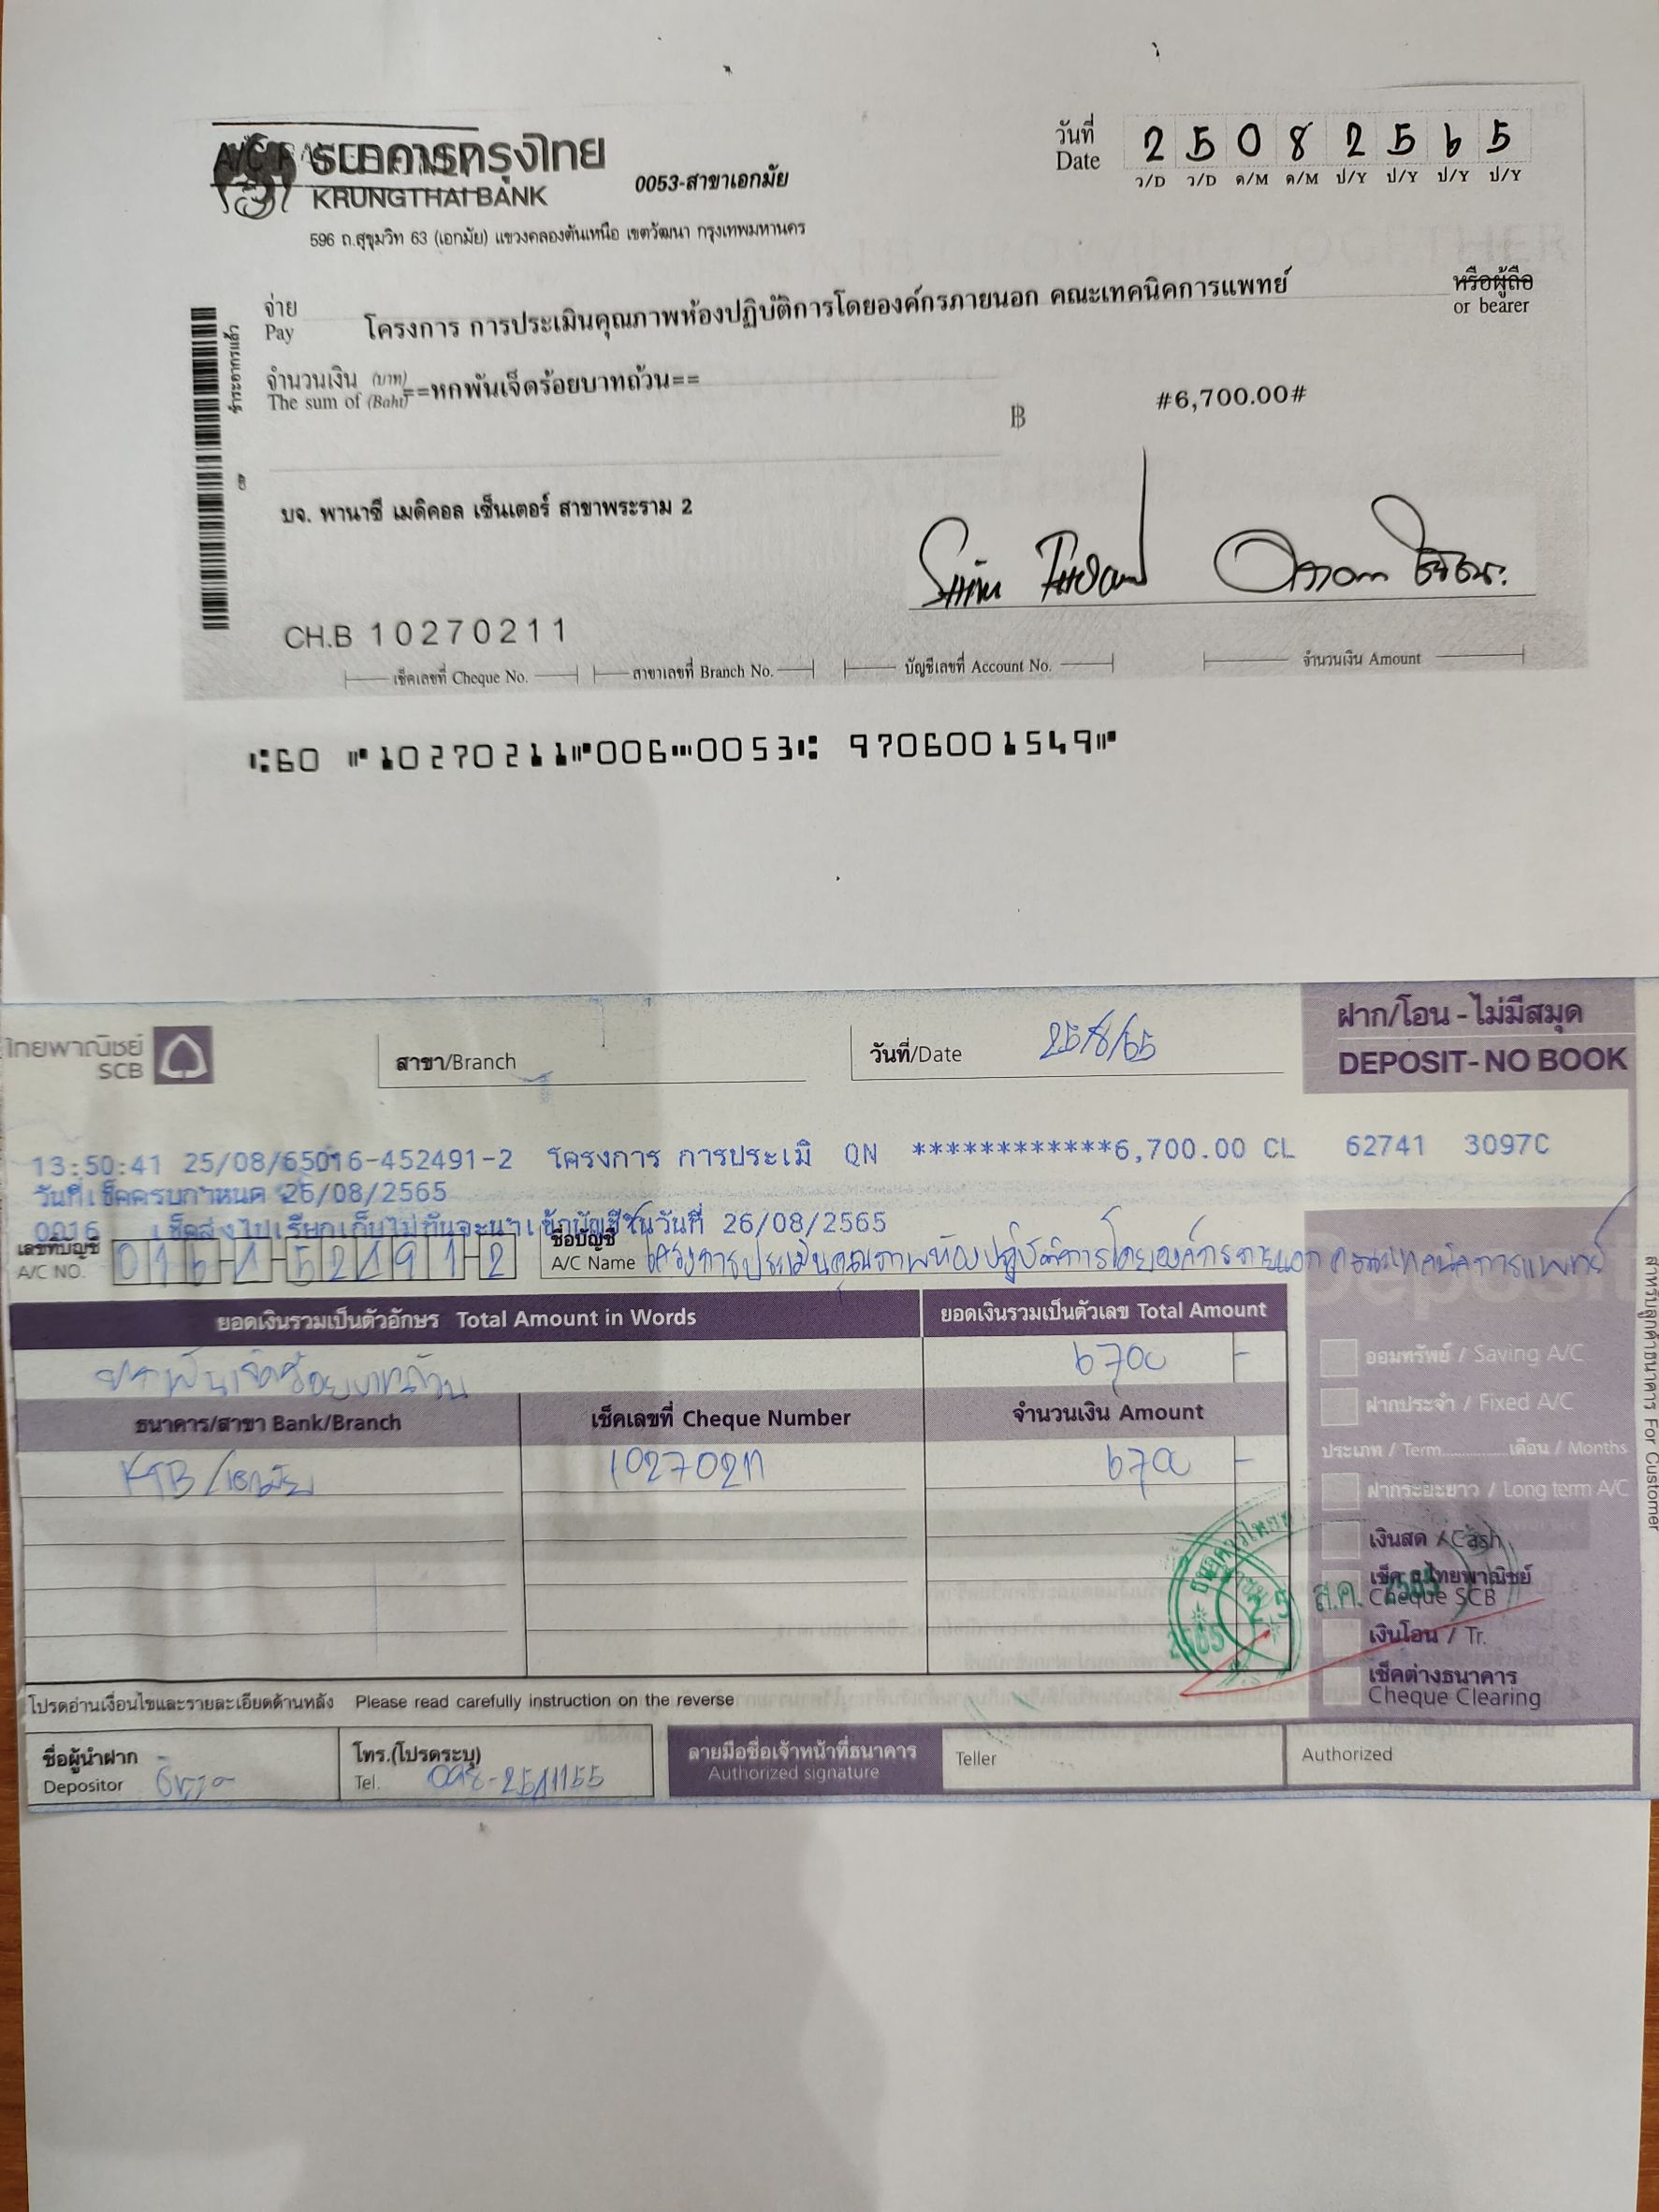 ธนาคารกรุงไทย
KRUNGTHAI BANK
0053-สาขาเอกมัย
596 ถ.สุขุมวิท 63 (เอกมัย) แขวงคลองตันเหนือ เขตวัฒนา กรุงเทพมหานคร
วันที่ 2 5 0 8 2 5 6 5
Date ว/D ว/D ด/M ด/M ป/Y ป/Y ป/Y ป/Y
จ่าย หรือผู้ถือ
Pay โครงการ การประเมินคุณภาพห้องปฏิบัติการโดยองค์กรภายนอก คณะเทคนิคการแพทย์ or bearer
ชำระอากรแล้ว
จำนวนเงิน (บาท) ==หกพันเจ็ดร้อยบาทถ้วน==
The sum of (Baht) ฿ #6,700.00#
บจ. พานาซี เมดิคอล เซ็นเตอร์ สาขาพระราม 2
CH.B 10270211
เช็คเลขที่ Cheque No. สาขาเลขที่ Branch No. บัญชีเลขที่ Account No. จำนวนเงิน Amount
⑆60 ⑈10270211⑈006⑉0053⑆ 9706001549⑈
ไทยพาณิชย์
SCB
สาขา/Branch
วันที่/Date 25/8/65
ฝาก/โอน - ไม่มีสมุด
DEPOSIT - NO BOOK
13:50:41 25/08/65016-452491-2 โครงการ การประเมิ QN ************6,700.00 CL 62741 3097C
วันที่เช็คครบกำหนด 25/08/2565
0016 เช็คส่งไปเรียกเก็บไม่ทันจะนำเข้าบัญชีในวันที่ 26/08/2565
เลขที่บัญชี ชื่อบัญชี
A/C NO. A/C Name โครงการประเมินคุณภาพห้องปฏิบัติการโดยองค์กรภายนอก คณะเทคนิคการแพทย์
ยอดเงินรวมเป็นตัวอักษร Total Amount in Words ยอดเงินรวมเป็นตัวเลข Total Amount
หกพันเจ็ดร้อยบาทถ้วน 6700 -
ธนาคาร/สาขา Bank/Branch เช็คเลขที่ Cheque Number จำนวนเงิน Amount
KTB/เอกมัย 10270211 6700 -
ออมทรัพย์ / Saving A/C
ฝากประจำ / Fixed A/C
ประเภท / Term............เดือน / Months
ฝากระยะยาว / Long term A/C
เงินสด / Cash
เช็ค ไทยพาณิชย์
Cheque SCB
เงินโอน / Tr.
เช็คต่างธนาคาร
Cheque Clearing
25 ส.ค. 2565
สำหรับลูกค้าธนาคาร For Customer
โปรดอ่านเงื่อนไขและรายละเอียดด้านหลัง Please read carefully instruction on the reverse
ชื่อผู้นำฝาก
Depositor
โทร.(โปรดระบุ)
Tel. 098-2511155
ลายมือชื่อเจ้าหน้าที่ธนาคาร
Authorized signature
Teller
Authorized